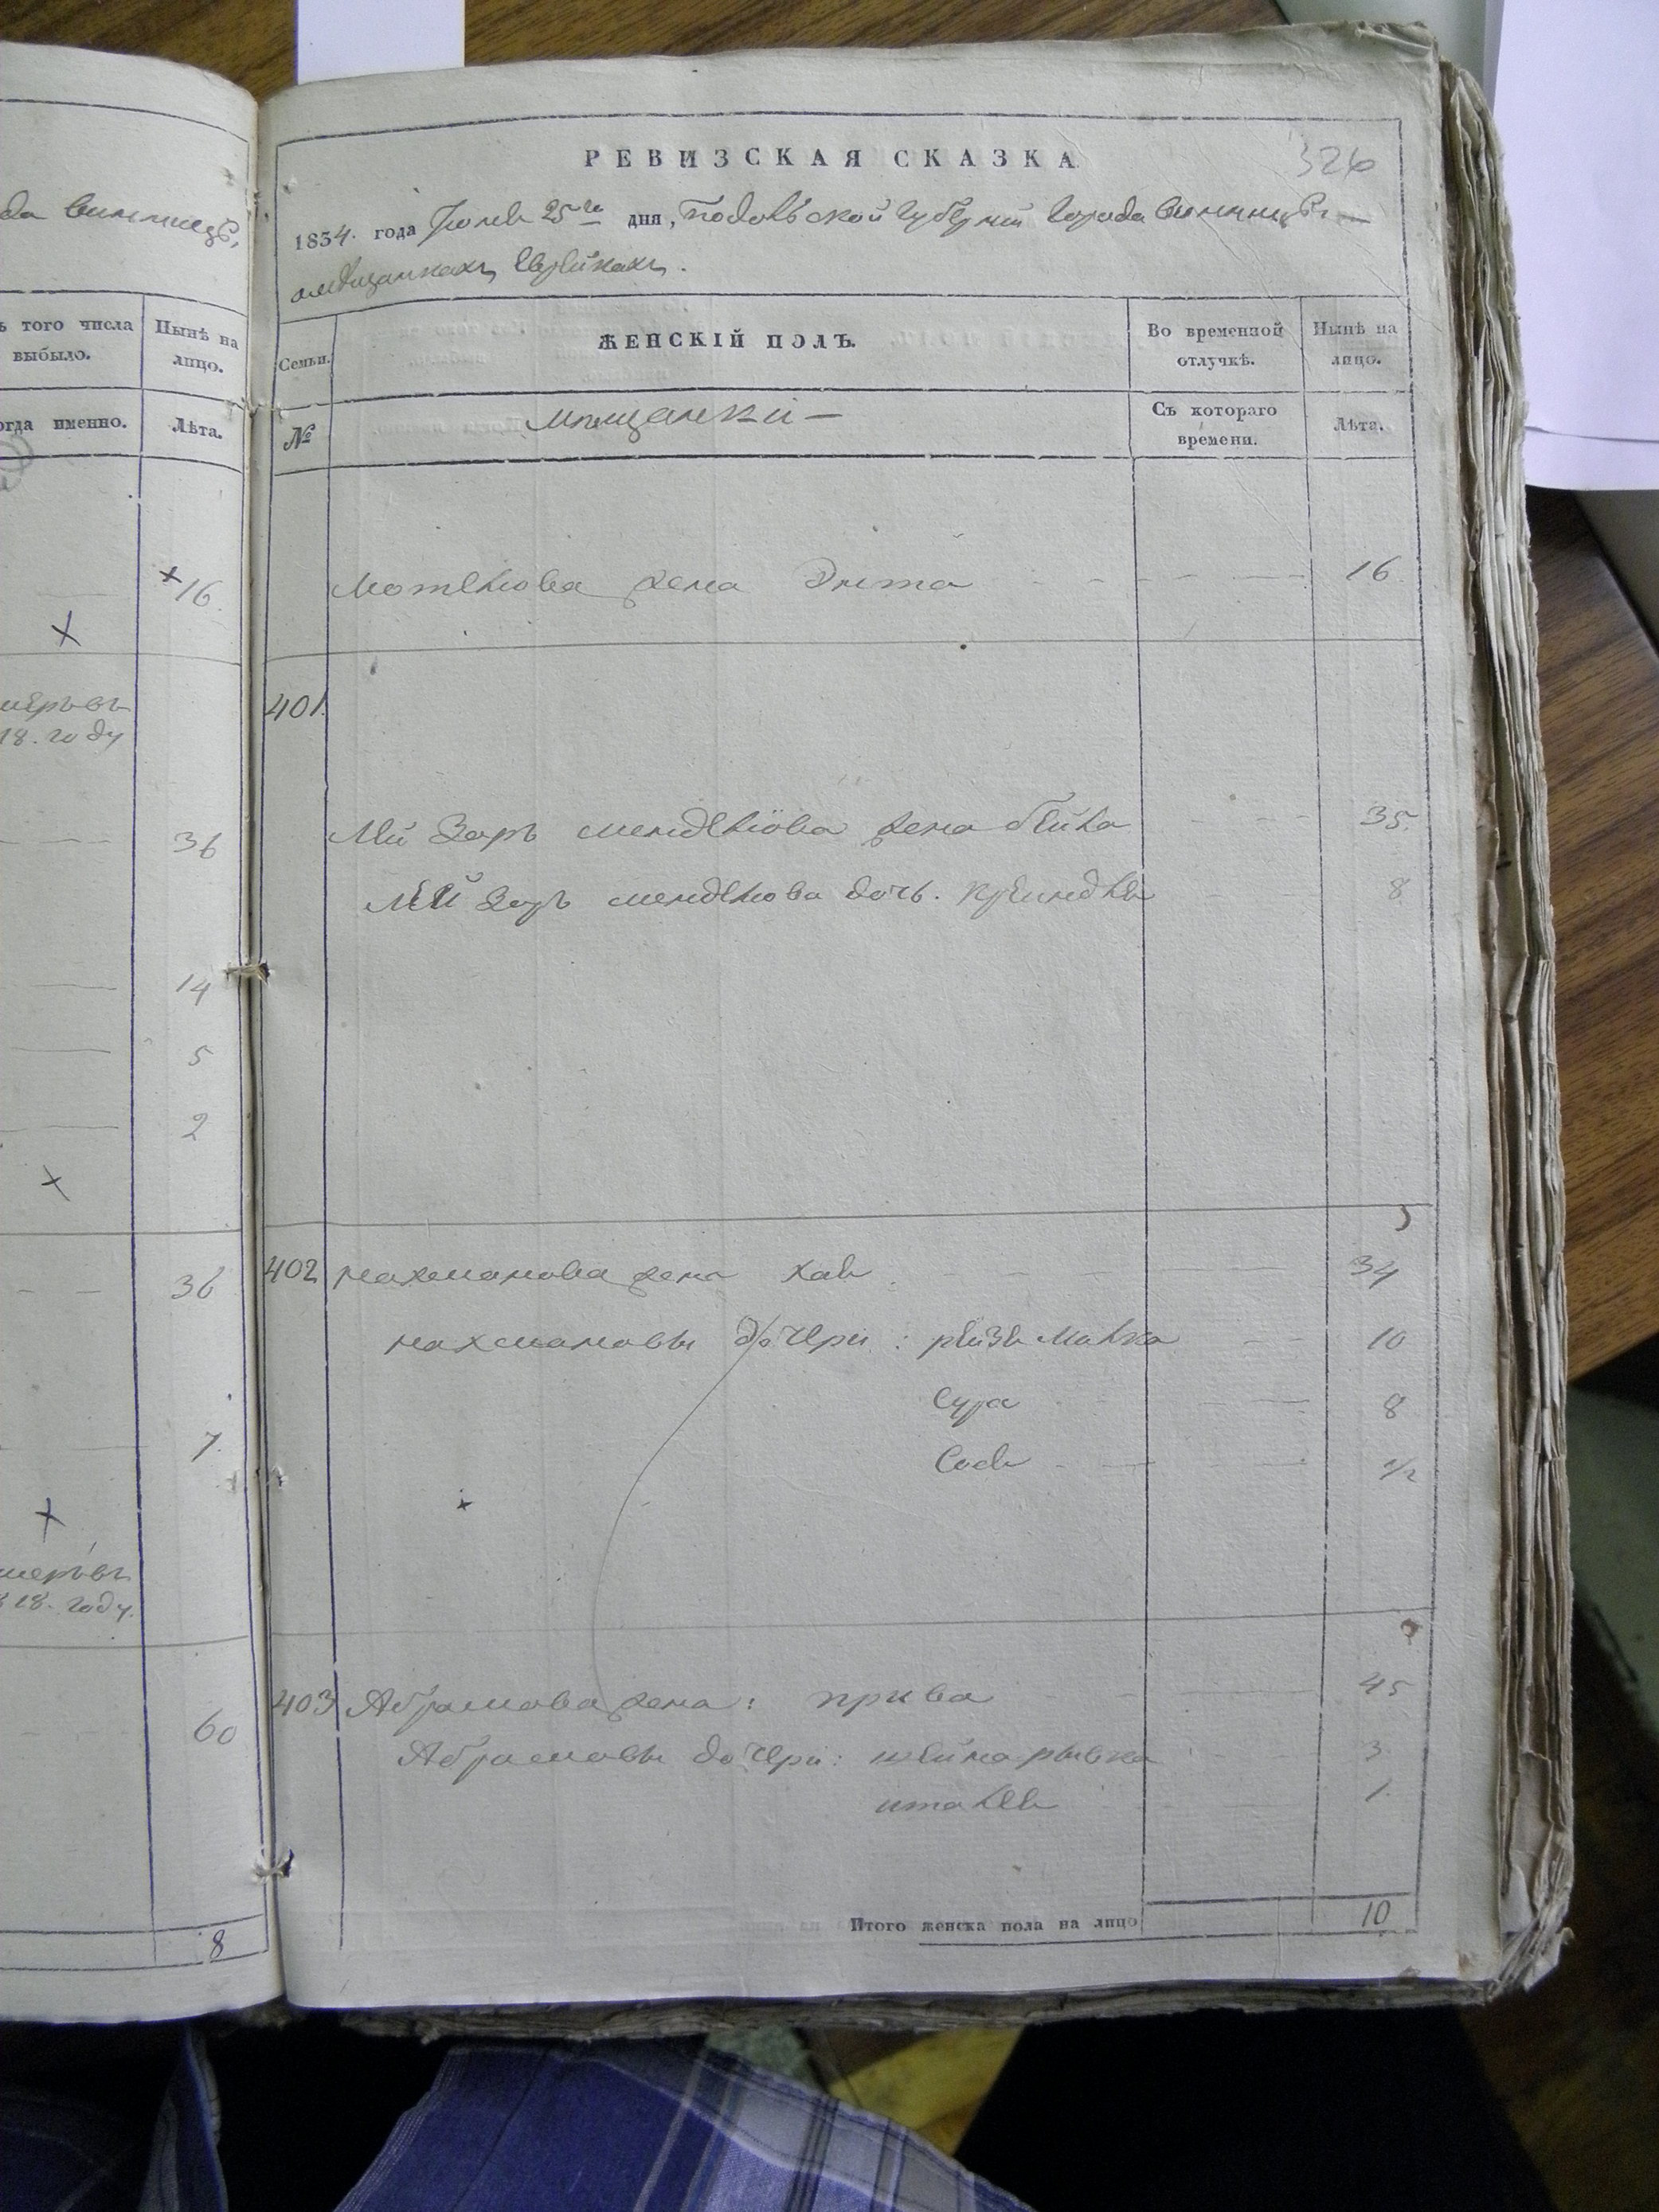 да винницѣ,
ъ того числа
выбыло.
Нынѣ на
лицо.
огда именно.
Лѣта.
16.
умеръ въ
18. году
36
14
5
2
36
7.
умеръ въ
18. году.
60
8
РЕВИЗСКАЯ СКАЗКА
326
1834. года Іюня 25го дня, Подольской губерніи города винницѣ
омѣщанкахъ Еврейкахъ.
Семьи.
ЖЕНСКІЙ ПОЛЪ.
Во временной
отлучкѣ.
Нынѣ на
лицо.
№
мѣщанки
Съ котораго
времени.
Лѣта.
жена 16.
401.
Лейзоръ менделюва жена бейла 35.
Лейзоръ менделюва дочь. Крейндля 8
402 нахманова жена хая 34
нахмановы дочери: рейзя Малка 10
Сура 8
Сося 1/2
403 Абрамова жена: 45
Абрамовы дочери: шейна рывка 3.
1.
Итого женска пола на лицо 10